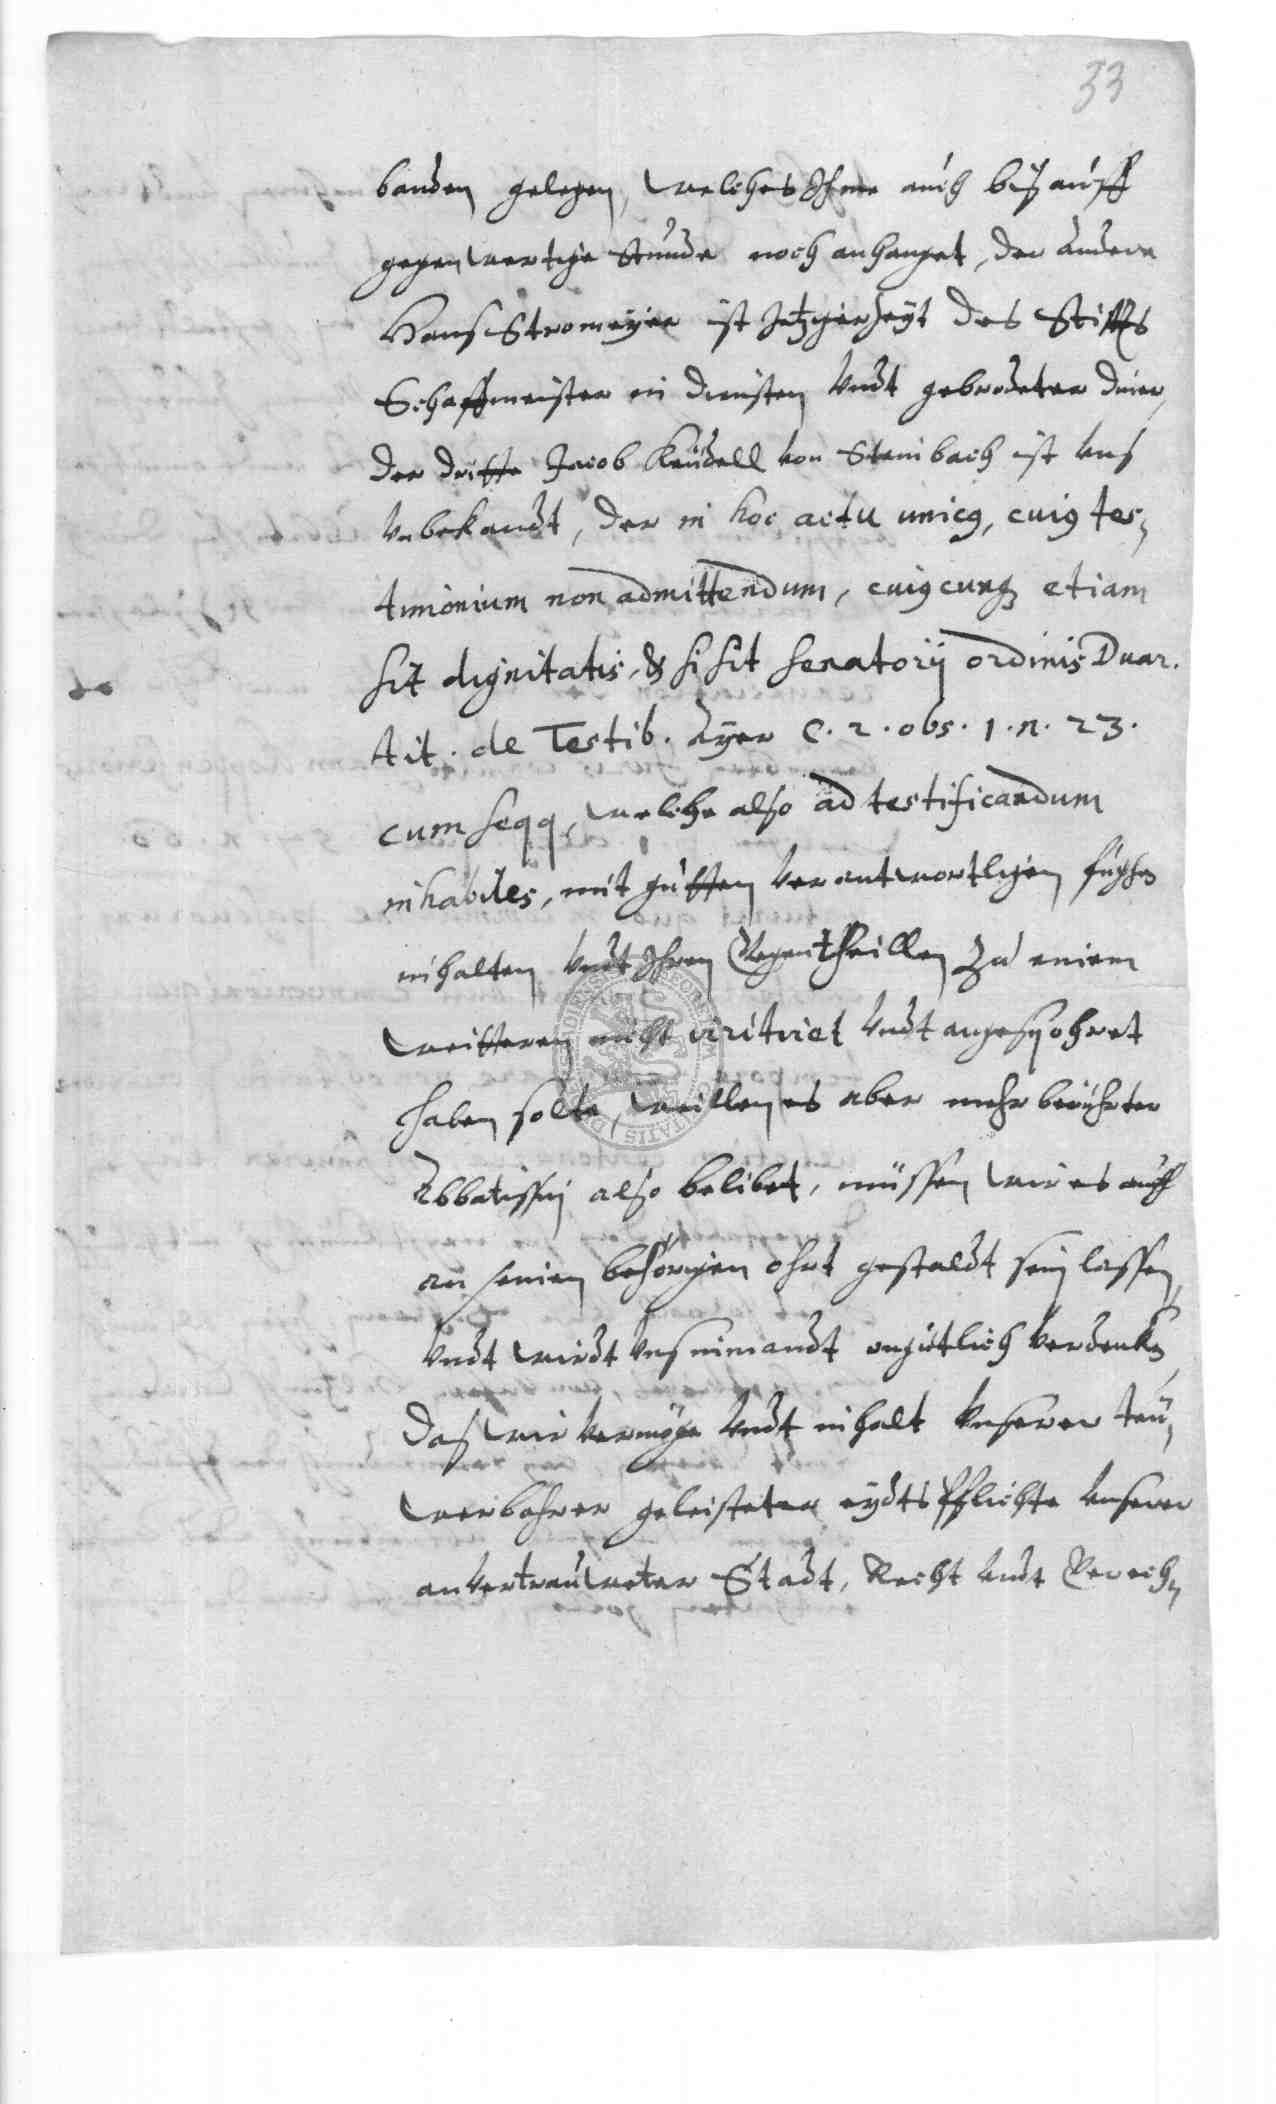 33
banden gelegen, welches Ihme auch biß auff
gegenwertige Stunde noch anhanget, der andere
Hanß Stromeyer ist Jetzger Zeyt des Stiffts
Schaffmeister in diensten Vndt gebrodeter diner,
der dritte Jacob Keudell von Steinbach ist vns
Vnbekandt, der in hoc actu unicq, cuiq tes,
timonium non admittendum, cuiqcunq etiam
sit dignitatis, & si sit senatorij ordinis Duar.
tit. de Testib. Ayer C. 2. obs. 1. n. 23.
cum seqq, welche also ad testificandum
inhabiles, mit gutten Verantwortligen
inhalten Vndt Ihren Gegentheillen Zu einem
weitteren nicht Vndt angefohret
haben solte, weillen es aber mehr berührter
Abbatissin also belibet, müssen wir es auch
an seinen behörigen ohrt gestaldt sein lassen,
Vndt wirdt Vns nimandt ongütlich verdenken
daß wir vermöge Vndt inhalt Vnserer teu,
werbahrer geleisteter eydts Pflichte Vnserer
anVertrauweter Stadt, Recht Vndt Gerech,